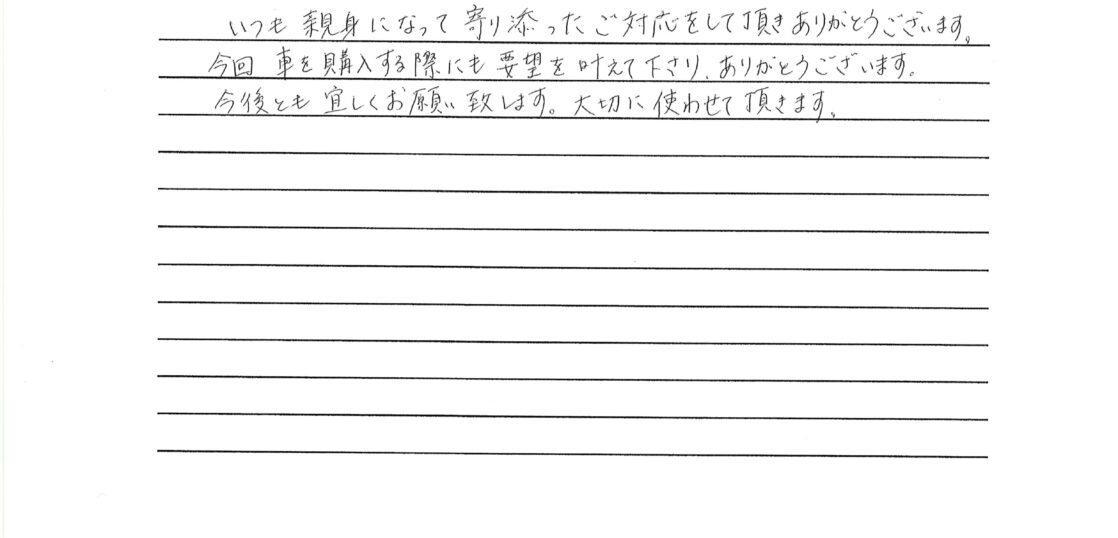 いつも親身になって寄り添ったご対応をして頂きありがとうございます。
今回車を購入する際にも要望を叶えて下さり、ありがとうございます。
今後とも宜しくお願い致します。大切に使わせて頂きます。